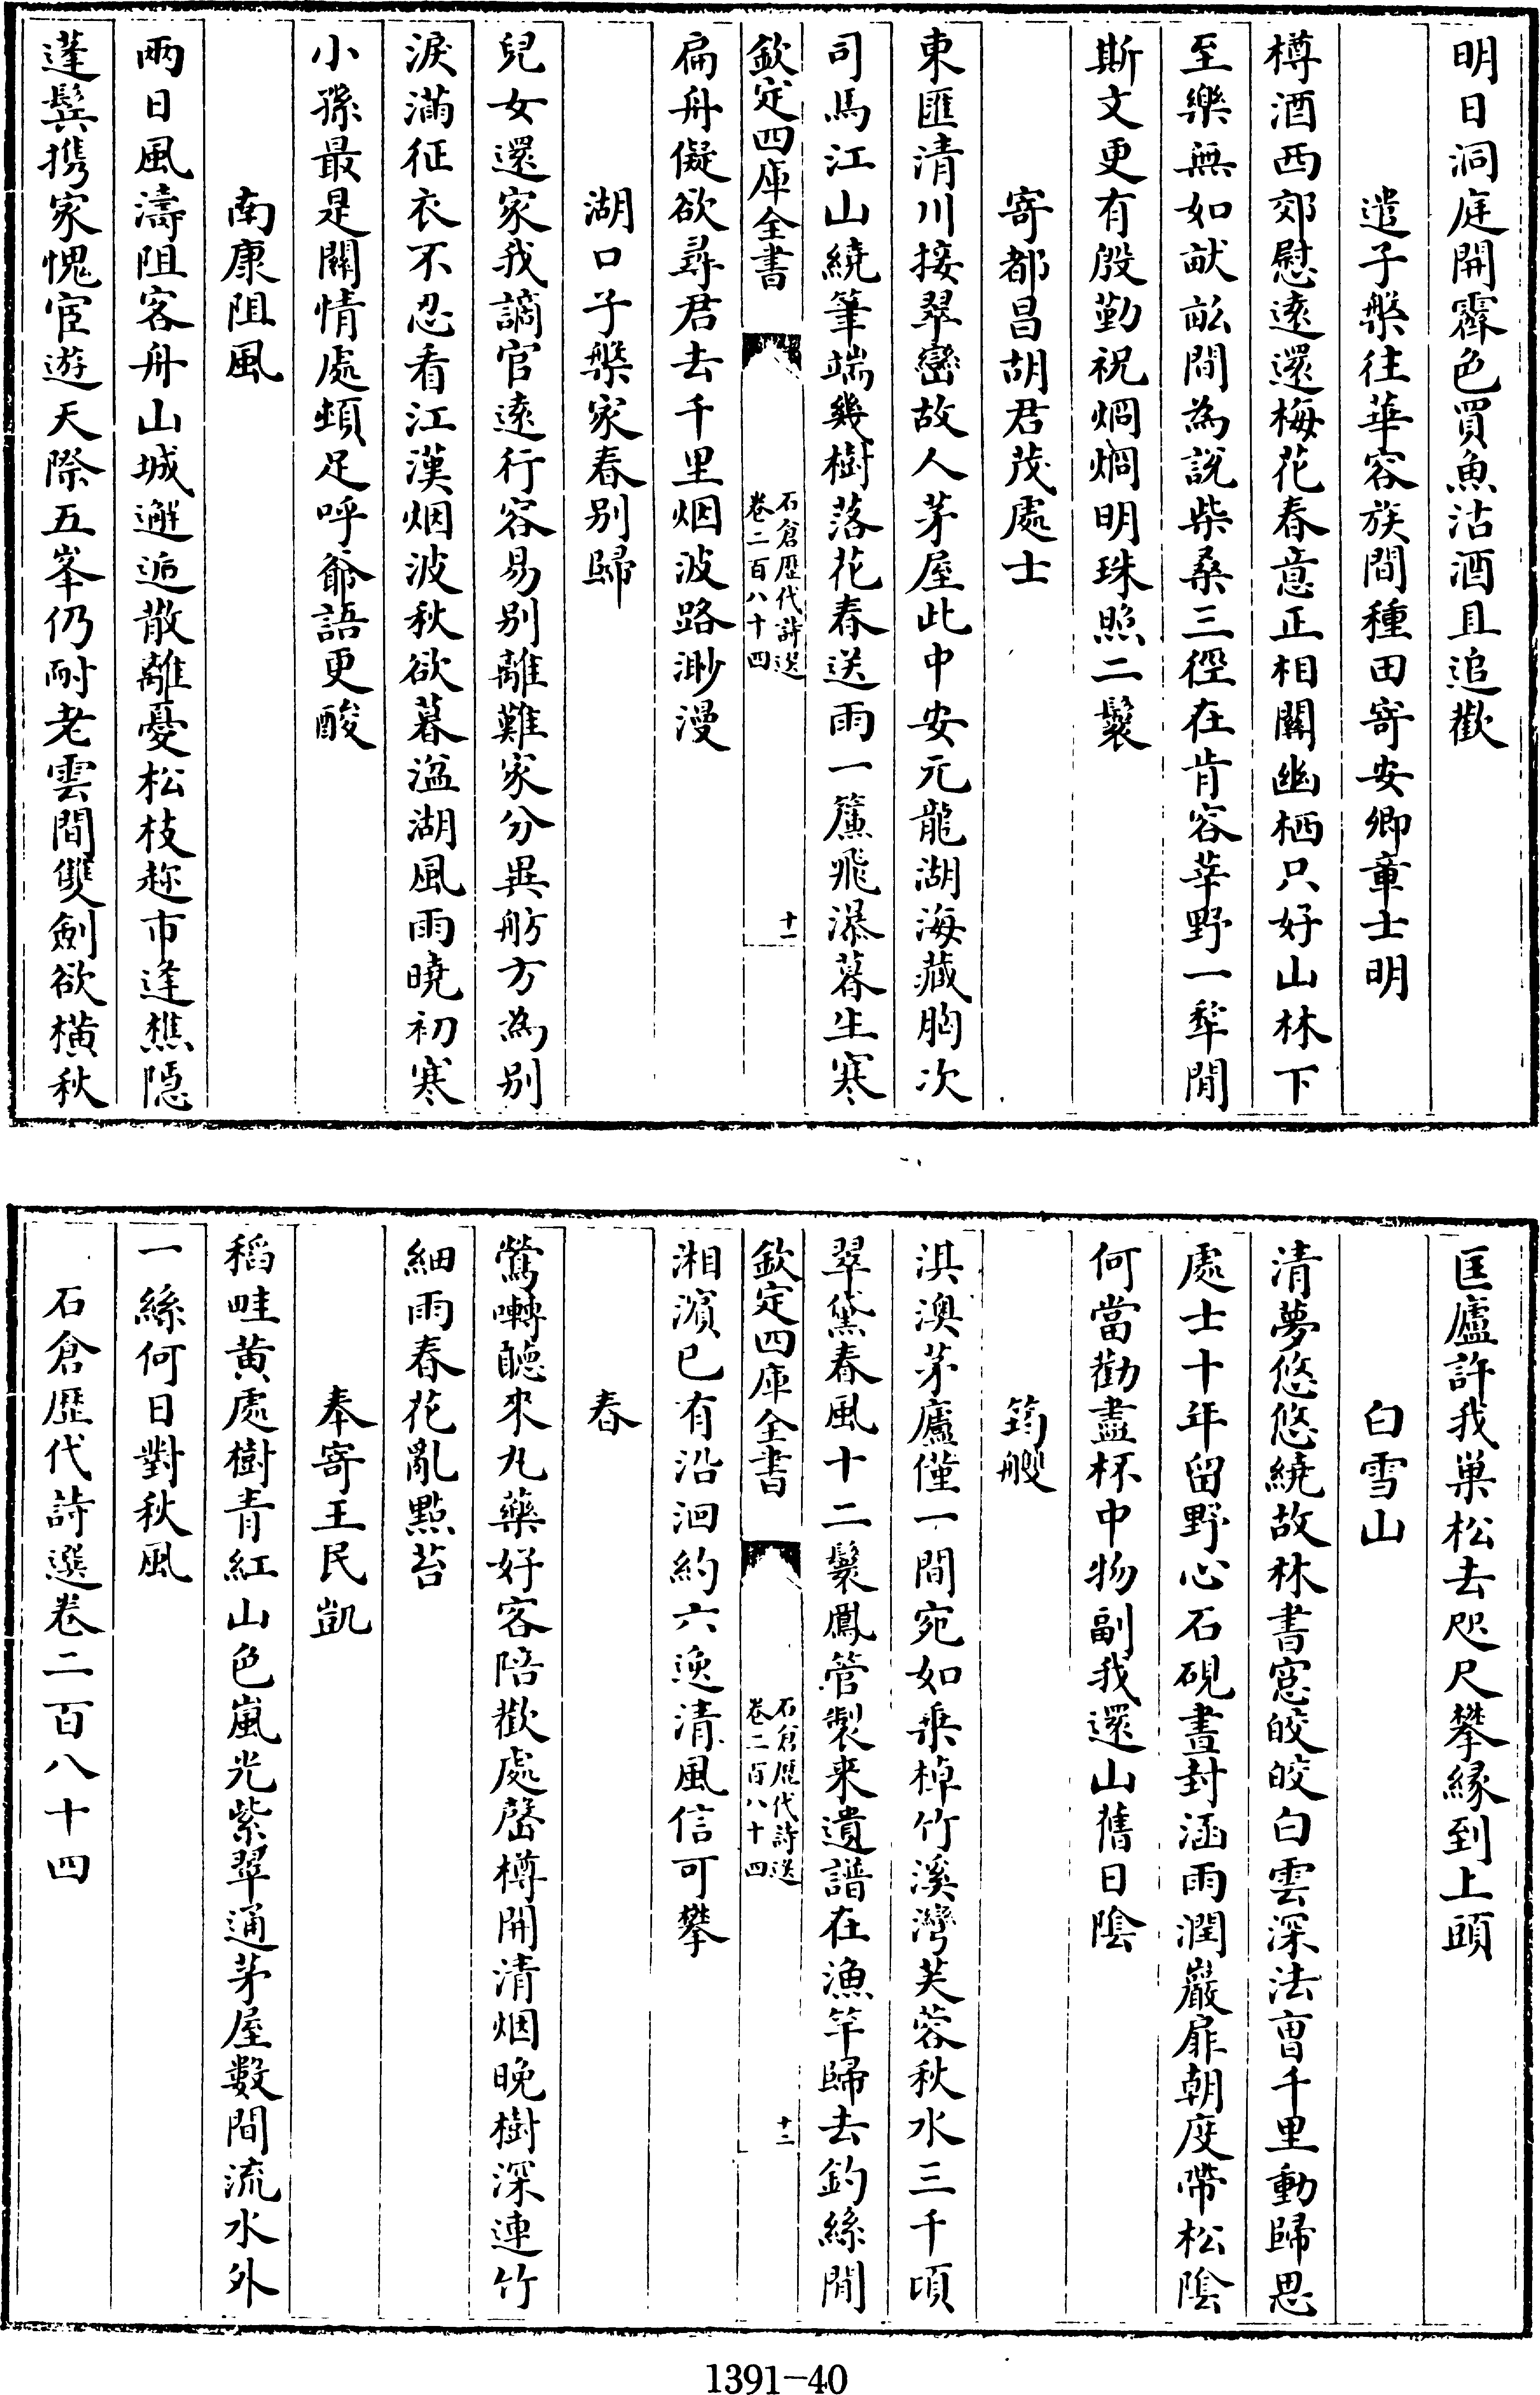 明日洞庭開霽色買魚沽酒且追歡
遣子槃往華容族間種田寄安卿章士明
樽酒西郊慰遠還梅花春意正相關幽栖只好山林下
至樂無如畎畝間為說柴桑三徑在肯容莘野一犂閒
斯文更有殷勤祝烱烱明珠照二鬟
寄都昌胡君茂處士
東匯清川接翠巒故人茅屋此中安元龍湖海藏胸次
司馬江山繞筆端幾樹落花春送雨一簾飛瀑暮生寒
欽定四庫全書
石倉歷代詩選
卷二百八十四
十一
扁舟儗欲尋君去千里烟波路渺漫
湖口子槃家春别歸
兒女還家我謫官遠行容易别離難家分異舫方為别
淚滿征衣不忍看江漢烟波秋欲暮湓湖風雨曉初寒
小孫最是關情處頓足呼爺語更酸
南康阻風
兩日風濤阻客舟山城邂逅散離憂松枝趂市逢樵隱
蓬鬂携家愧宦遊天際五峯仍耐老雲間雙劍欲橫秋
匡廬許我巢松去咫尺攀緣到上頭
白雪山
清夢悠悠繞故林書窓皎皎白雲深法曺千里動歸思
處士十年留野心石硯晝封涵雨潤巖扉朝度帶松陰
何當勸盡杯中物副我還山舊日陰
筠艘
淇澳茅廬僅一間宛如乗棹竹溪灣芙蓉秋水三千頃
翠黛春風十二鬟鳳管製来遺譜在漁竿歸去釣絲閒
欽定四庫全書
石倉歷代詩選
卷二百八十四
十二
湘濵已有沿洄約六逸清風信可攀
春
鶯囀聽來九藥好客陪歡處罄樽開清烟晚樹深連竹
細雨春花亂點苔
奉寄王民凱
稻畦黄處樹青紅山色嵐光紫翠通茅屋數間流水外
一絲何日對秋風
石倉歷代詩選卷二百八十四
1391-40